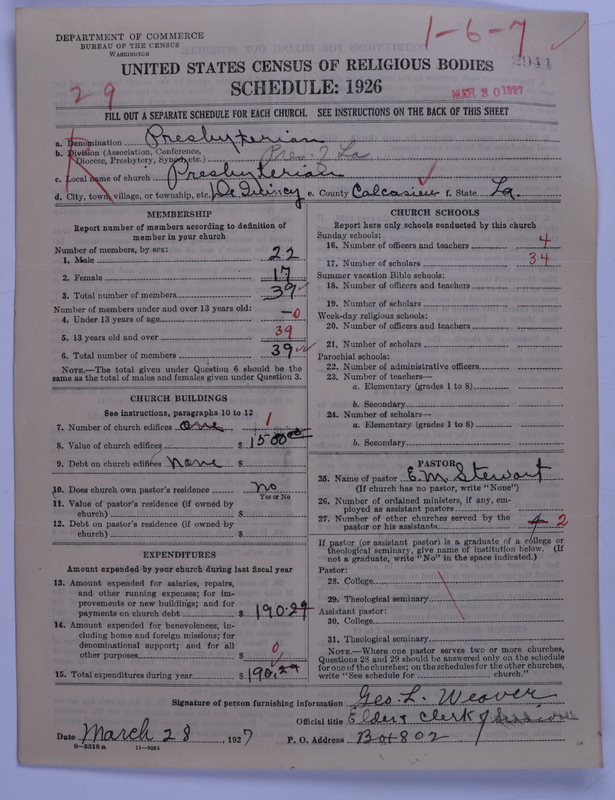 DEPARTMENT OF COMMERCE
BUREAU OF THE CENSUS
WASHINGTON
1-6-7
2941
UNITED STATES CENSUS OF RELIGIOUS BODIES
SCHEDULE: 1926
29
MAR 30 1927
FILL OUT A SEPARATE SCHEDULE FOR EACH CHURCH. SEE INSTRUCTIONS ON THE BACK OF THIS SHEET
a. Denomination Presbyterian
b. Division (Association, Conference, Diocese, Presbytery, Synod, etc.) Pres. La
c. Local name of church Presbyterian
d. City, town, village, or township, etc. De Quincy e. County Calcasieu f. State La.
MEMBERSHIP
Report number of members according to definition of
member in your church
Number of members, by sex:
1. Male 22
2. Female 17
3. Total number of members 39
Number of members under and over 13 years old:
4. Under 13 years of age -0
5. 13 years old and over 39
6. Total number of members 39
NOTE.—The total given under Question 6 should be
same as the total of males and females given under Question 3.
CHURCH BUILDINGS
See instructions, paragraphs 10 to 12
7. Number of church edifices one 1
8. Value of church edifices $ 1500.00
9. Debt on church edifices none $
10. Does church own pastor's residence no
Yes or No
11. Value of pastor's residence (if owned by
church) $
12. Debt on pastor's residence (if owned by
church) $
EXPENDITURES
Amount expended by your church during last fiscal year
13. Amount expended for salaries, repairs,
and other running expenses; for im-
provements or new buildings; and for
payments on church debt $ 190.29
14. Amount expended for benevolences, in-
cluding home and foreign missions; for
denominational support; and for all
other purposes $ 0
15. Total expenditures during year $ 190.29
CHURCH SCHOOLS
Report here only schools conducted by this church
Sunday schools:
16. Number of officers and teachers 4
17. Number of scholars 34
Summer vacation Bible schools:
18. Number of officers and teachers
19. Number of scholars
Week-day religious schools:
20. Number of officers and teachers
21. Number of scholars
Parochial schools:
22. Number of administrative officers
23. Number of teachers—
a. Elementary (grades 1 to 8)
b. Secondary
24. Number of scholars—
a. Elementary (grades 1 to 8)
b. Secondary
PASTOR
25. Name of pastor E. M. Stewart
(If church has no pastor, write "None")
26. Number of ordained ministers, if any, em-
ployed as assistant pastors
27. Number of other churches served by the
pastor or his assistants 4 2
If pastor (or assistant pastor) is a graduate of a college or
theological seminary, give name of institution below. (If
not a graduate, write "No" in the space indicated.)
Pastor:
28. College
29. Theological seminary
Assistant pastor:
30. College
31. Theological seminary
NOTE.—Where one pastor serves two or more churches,
Questions 28 and 29 should be answered only on the schedule
for one of the churches; on the schedules for the other churches,
write "See schedule for church."
Signature of person furnishing information Geo. L. Weaver
Official title Elder & Clerk of Session
Date March 28 1927 P. O. Address Box 802
8—5318 a 11—9064